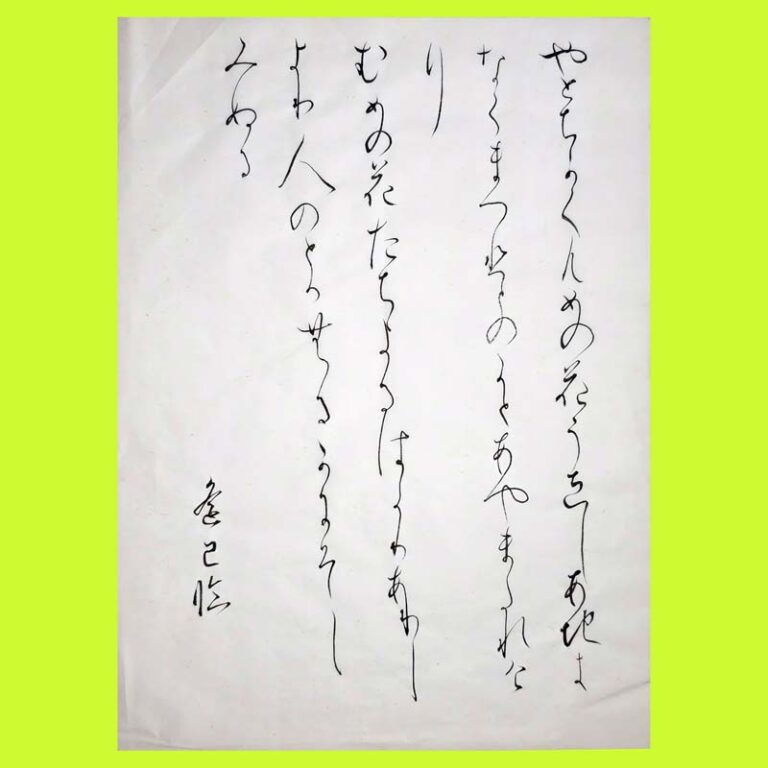 やとちかくむめの花うゑしあ地き
なくまつ人のかにあやまたれけ
り
むめの花たちよるはかりありし
より人のとかむるかにそし
みぬる
臨